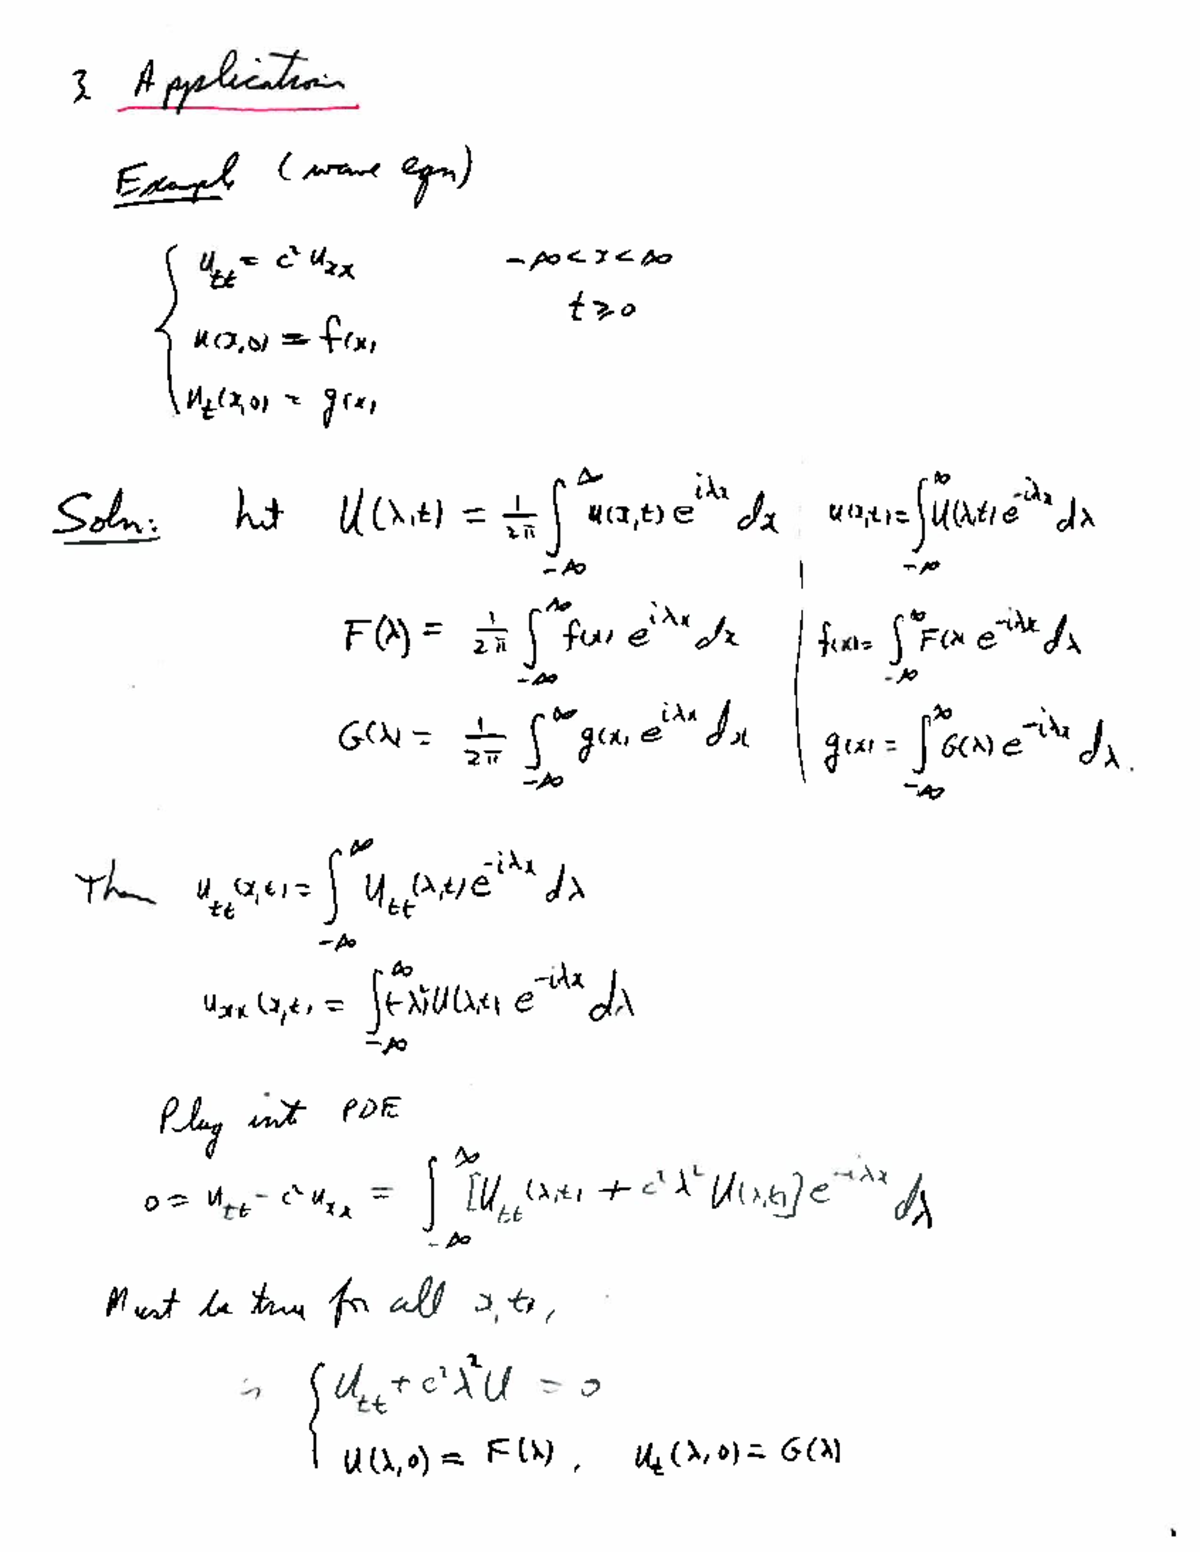 3. Application
Example (wave eqn)
u_tt = c² u_xx    -∞ < x < ∞
t ≥ 0
u(x,0) = f(x)
u_t(x,0) = g(x)
Soln: Let U(λ,t) = 1/2π ∫_{-∞}^{∞} u(x,t) e^{iλx} dx | u(x,t) = ∫_{-∞}^{∞} U(λ,t) e^{-iλx} dλ
F(λ) = 1/2π ∫_{-∞}^{∞} f(x) e^{iλx} dx | f(x) = ∫_{-∞}^{∞} F(λ) e^{-iλx} dλ
G(λ) = 1/2π ∫_{-∞}^{∞} g(x) e^{iλx} dx | g(x) = ∫_{-∞}^{∞} G(λ) e^{-iλx} dλ.
Then u_tt(x,t) = ∫_{-∞}^{∞} U_tt(λ,t) e^{-iλx} dλ
u_xx(x,t) = ∫_{-∞}^{∞} (-λ²) U(λ,t) e^{-iλx} dλ
Plug into PDE
0 = u_tt - c² u_xx = ∫_{-∞}^{∞} [U_tt(λ,t) + c² λ² U(λ,t)] e^{-iλx} dλ
Must be true for all x, t,
U_tt + c² λ² U = 0
U(λ,0) = F(λ), U_t(λ,0) = G(λ)